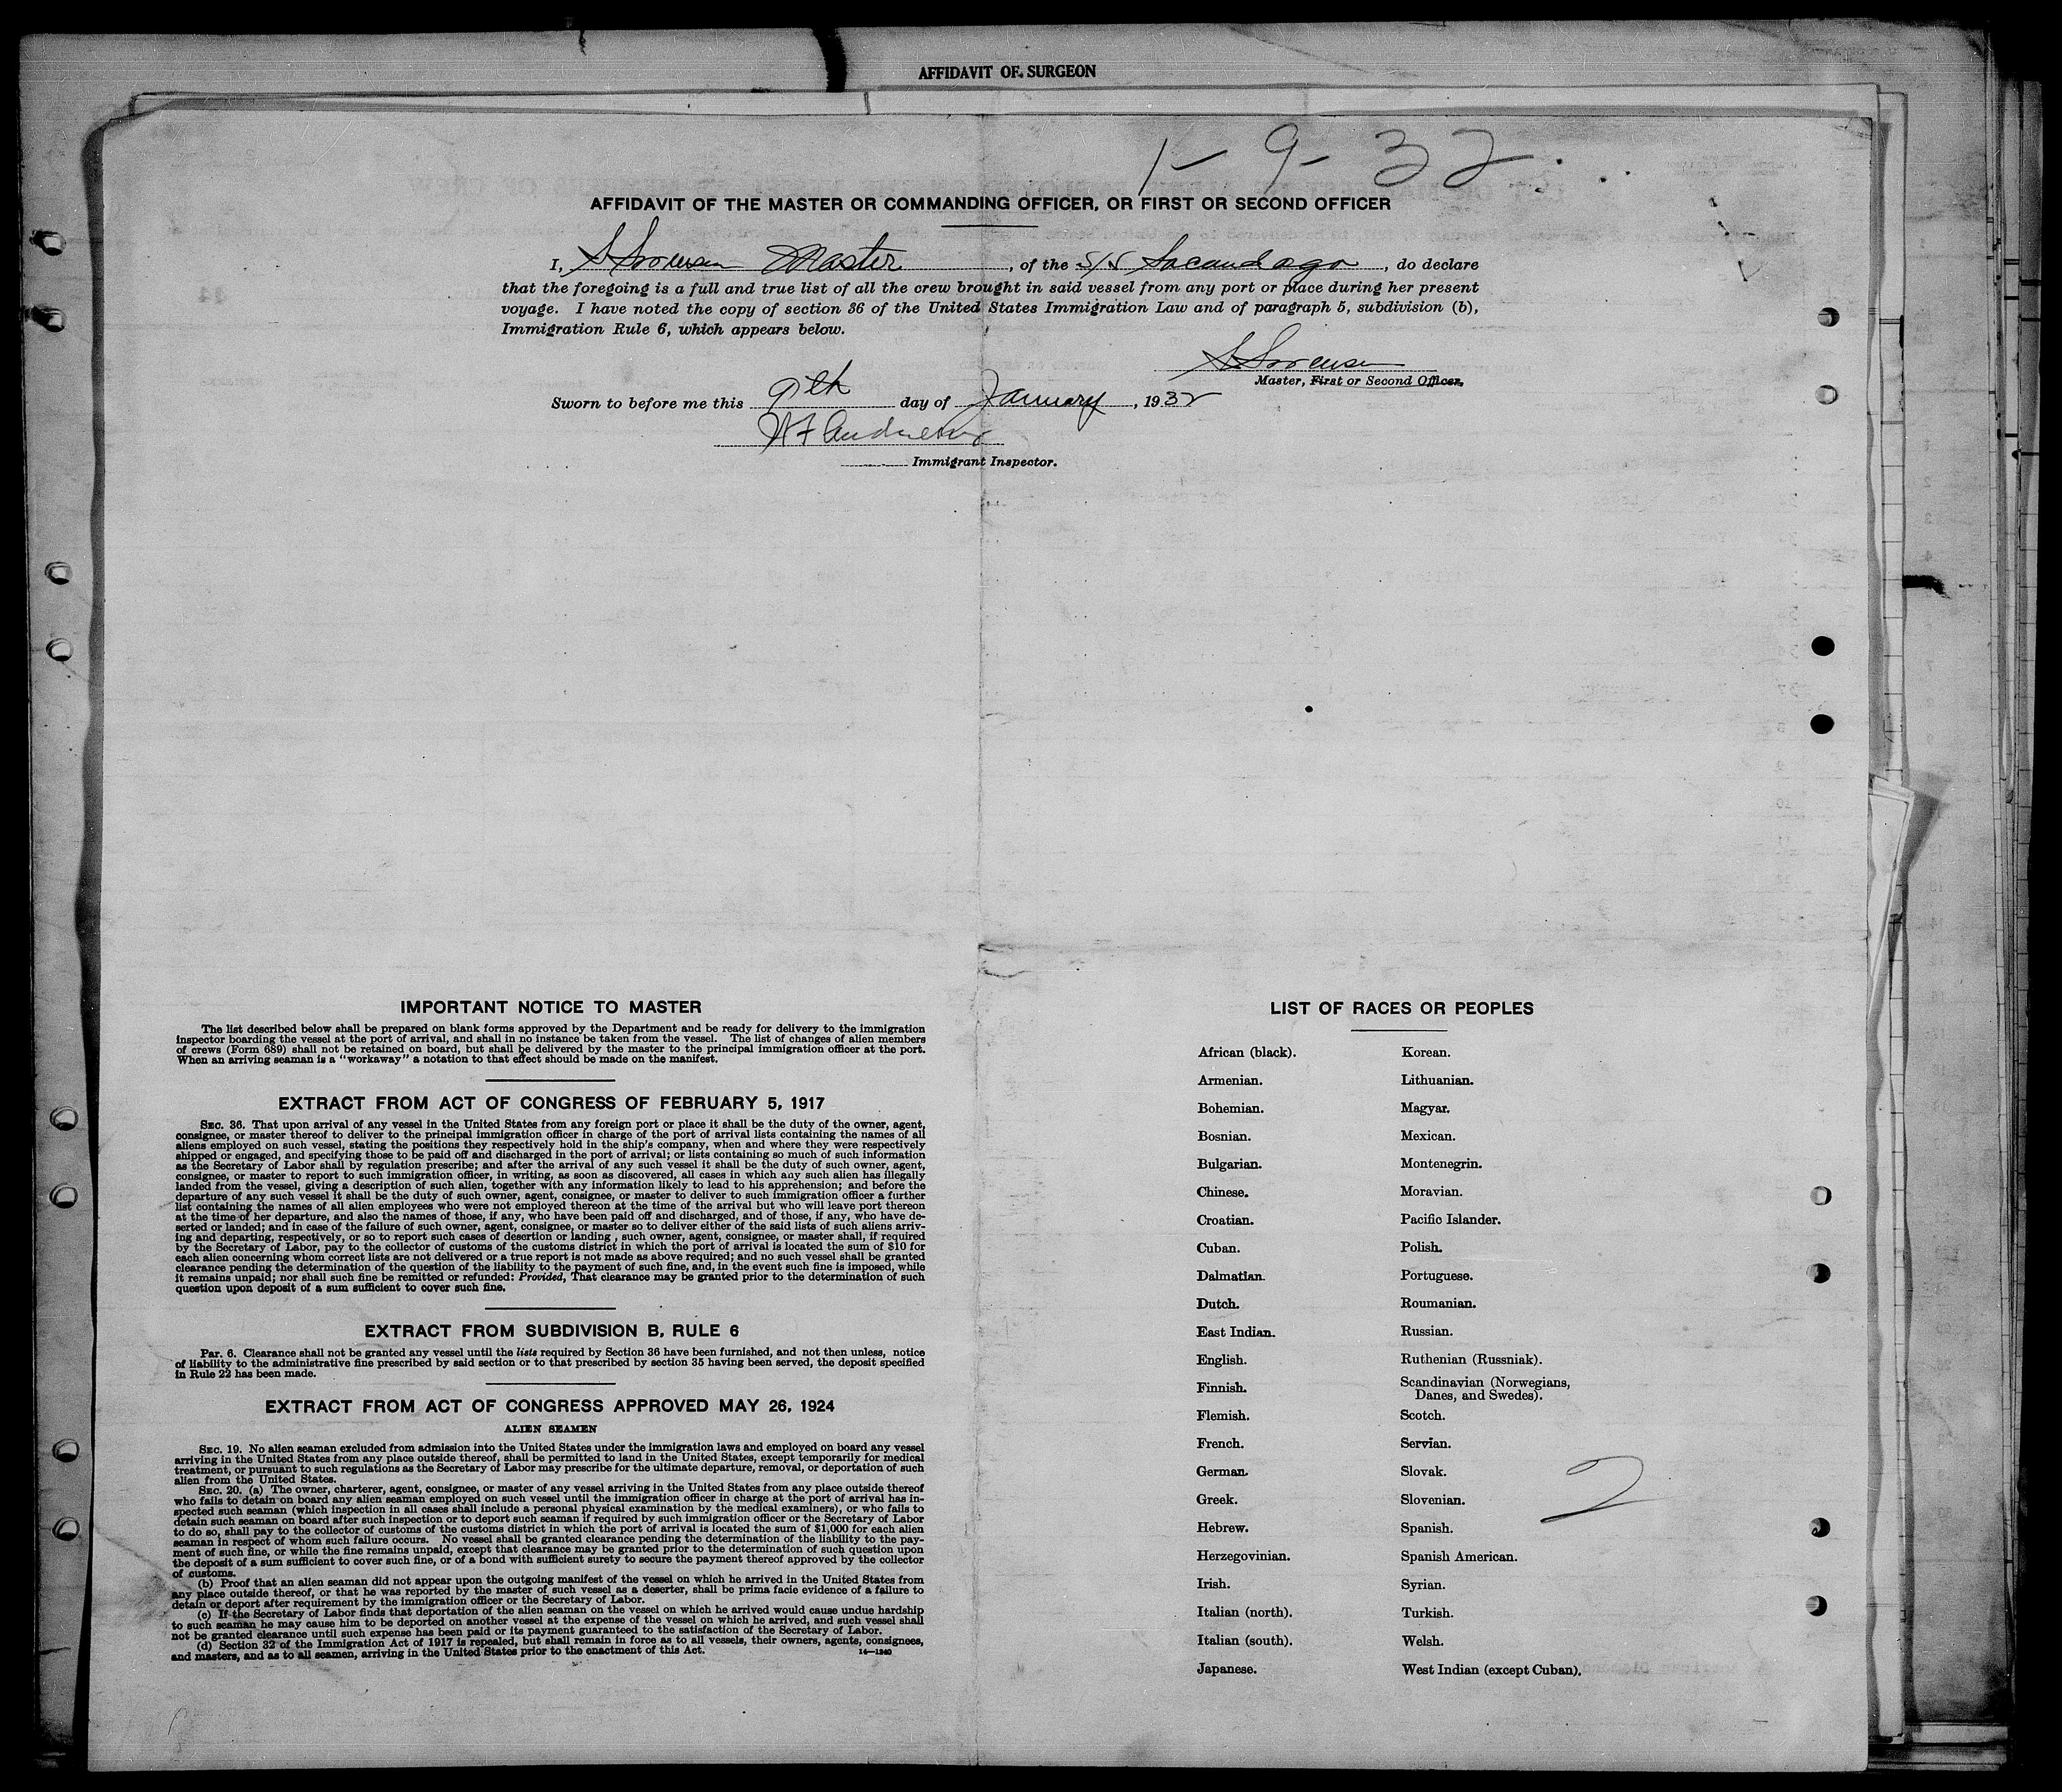 AFFIDAVIT OF SURGEON
1-9-32
AFFIDAVIT OF THE MASTER OR COMMANDING OFFICER, OR FIRST OR SECOND OFFICER
I, S Sorensen Master, of the S/S Sacandaga, do declare
that the foregoing is a full and true list of all the crew brought in said vessel from any port or place during her present
voyage. I have noted the copy of section 36 of the United States Immigration Law and of paragraph 5, subdivision (b),
Immigration Rule 6, which appears below.
S Sorensen
Master, First or Second Officer.
Sworn to before me this 9th day of January, 1932
Immigrant Inspector.
IMPORTANT NOTICE TO MASTER
The list described below shall be prepared on blank forms approved by the Department and be ready for delivery to the immigration
inspector boarding the vessel at the port of arrival, and shall in no instance be taken from the vessel. The list of changes of alien members
of crews (Form 689) shall not be retained on board, but shall be delivered by the master to the principal immigration officer at the port.
When an arriving seaman is a "workaway" a notation to that effect should be made on the manifest.
EXTRACT FROM ACT OF CONGRESS OF FEBRUARY 5, 1917
SEC. 36. That upon arrival of any vessel in the United States from any foreign port or place it shall be the duty of the owner, agent,
consignee, or master thereof to deliver to the principal immigration officer in charge of the port of arrival lists containing the names of all
aliens employed on such vessel, stating the positions they respectively hold in the ship's company, when and where they were respectively
shipped or engaged, and specifying those to be paid off and discharged in the port of arrival; or lists containing so much of such information
as the Secretary of Labor shall by regulation prescribe; and after the arrival of any such vessel it shall be the duty of such owner, agent,
consignee, or master to report to such immigration officer, in writing, as soon as discovered, all cases in which any such alien has illegally
landed from the vessel, giving a description of such alien, together with any information likely to lead to his apprehension; and before the
departure of any such vessel it shall be the duty of such owner, agent, consignee, or master to deliver to such immigration officer a further
list containing the names of all alien employees who were not employed thereon at the time of the arrival but who will leave port thereon
at the time of her departure, and also the names of those, if any, who have been paid off and discharged, and of those, if any, who have de-
serted or landed; and in case of the failure of such owner, agent, consignee, or master so to deliver either of the said lists of such aliens arriv-
ing and departing, respectively, or so to report such cases of desertion or landing, such owner, agent, consignee, or master shall, if required
by the Secretary of Labor, pay to the collector of customs of the customs district in which the port of arrival is located the sum of $10 for
each alien concerning whom correct lists are not delivered or a true report is not made as above required; and no such vessel shall be granted
clearance pending the determination of the question of the liability to the payment of such fine, and, in the event such fine is imposed, while
it remains unpaid; nor shall such fine be remitted or refunded: Provided, That clearance may be granted prior to the determination of such
question upon deposit of a sum sufficient to cover such fine.
EXTRACT FROM SUBDIVISION B, RULE 6
Par. 6. Clearance shall not be granted any vessel until the lists required by Section 36 have been furnished, and not then unless, notice
of liability to the administrative fine prescribed by said section or to that prescribed by section 35 having been served, the deposit specified
in Rule 22 has been made.
EXTRACT FROM ACT OF CONGRESS APPROVED MAY 26, 1924
ALIEN SEAMEN
SEC. 19. No alien seaman excluded from admission into the United States under the immigration laws and employed on board any vessel
arriving in the United States from any place outside thereof, shall be permitted to land in the United States, except temporarily for medical
treatment, or pursuant to such regulations as the Secretary of Labor may prescribe for the ultimate departure, removal, or deportation of such
alien from the United States.
SEC. 20. (a) The owner, charterer, agent, consignee, or master of any vessel arriving in the United States from any place outside thereof
who fails to detain on board any alien seaman employed on such vessel until the immigration officer in charge at the port of arrival has in-
spected such seaman (which inspection in all cases shall include a personal physical examination by the medical examiners), or who fails to
detain such seaman on board after such inspection or to deport such seaman if required by such immigration officer or the Secretary of Labor
to do so, shall pay to the collector of customs of the customs district in which the port of arrival is located the sum of $1,000 for each alien
seaman in respect of whom such failure occurs. No vessel shall be granted clearance pending the determination of the liability to the pay-
ment of such fine, or while the fine remains unpaid, except that clearance may be granted prior to the determination of such question upon
the deposit of a sum sufficient to cover such fine, or of a bond with sufficient surety to secure the payment thereof approved by the collector
of customs.
(b) Proof that an alien seaman did not appear upon the outgoing manifest of the vessel on which he arrived in the United States from
any place outside thereof, or that he was reported by the master of such vessel as a deserter, shall be prima facie evidence of a failure to
detain or deport after requirement by the immigration officer or the Secretary of Labor.
(c) If the Secretary of Labor finds that deportation of the alien seaman on the vessel on which he arrived would cause undue hardship
to such seaman he may cause him to be deported on another vessel at the expense of the vessel on which he arrived, and such vessel shall
not be granted clearance until such expense has been paid or its payment guaranteed to the satisfaction of the Secretary of Labor.
(d) Section 32 of the Immigration Act of 1917 is repealed, but shall remain in force as to all vessels, their owners, agents, consignees,
and masters, and as to all seamen, arriving in the United States prior to the enactment of this Act.
14—1240
LIST OF RACES OR PEOPLES
African (black).
Armenian.
Bohemian.
Bosnian.
Bulgarian.
Chinese.
Croatian.
Cuban.
Dalmatian.
Dutch.
East Indian.
English.
Finnish.
Flemish.
French.
German.
Greek.
Hebrew.
Herzegovinian.
Irish.
Italian (north).
Italian (south).
Japanese.
Korean.
Lithuanian.
Magyar.
Mexican.
Montenegrin.
Moravian.
Pacific Islander.
Polish.
Portuguese.
Roumanian.
Russian.
Ruthenian (Russniak).
Scandinavian (Norwegians,
Danes, and Swedes).
Scotch.
Servian.
Slovak.
Slovenian.
Spanish.
Spanish American.
Syrian.
Turkish.
Welsh.
West Indian (except Cuban).
2